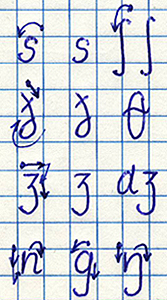 s s ʃ ʃ
ð ð θ
ʒ ʒ dʒ
n g ŋ